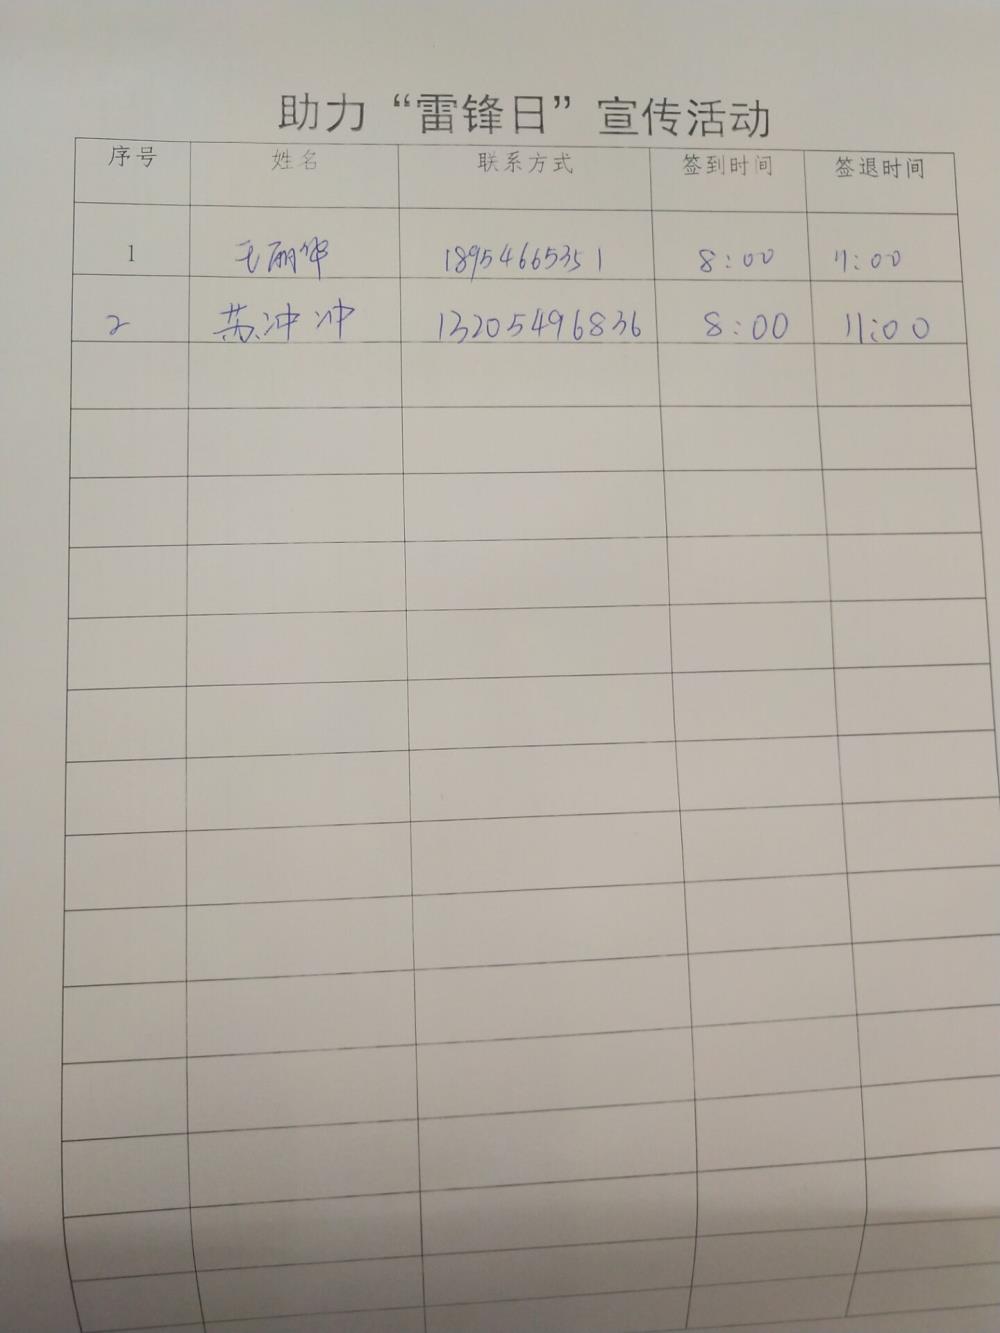 助力“雷锋日”宣传活动
序号 姓名 联系方式 签到时间 签退时间
1 毛丽华 18954665351 8:00 11:00
2 苏冲冲 13205496836 8:00 11:00